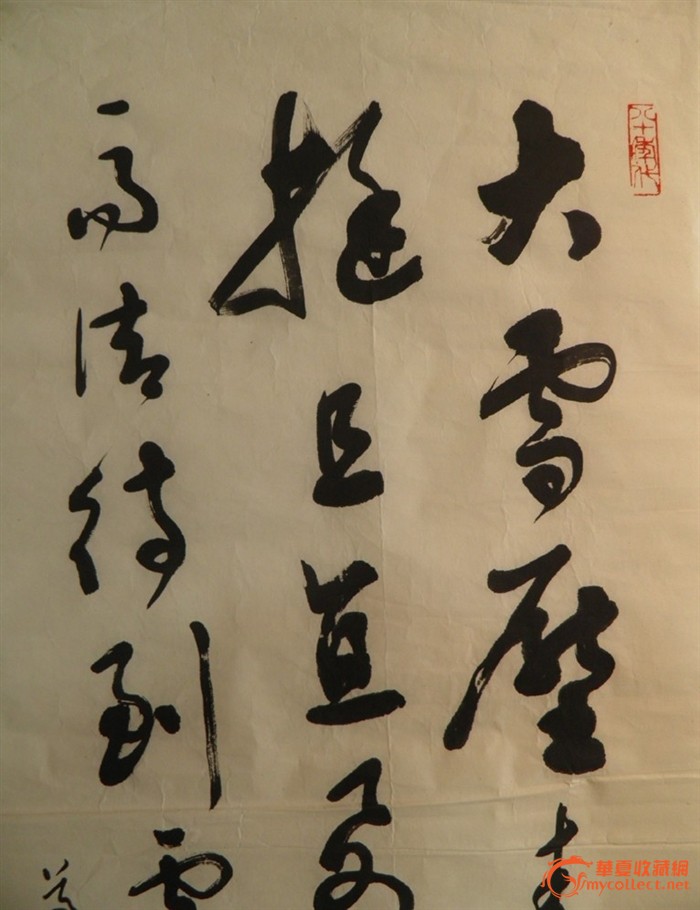 八十年代
大雪壓青
挺且直要
高洁待到雪
華夏收藏網
mycollect.net